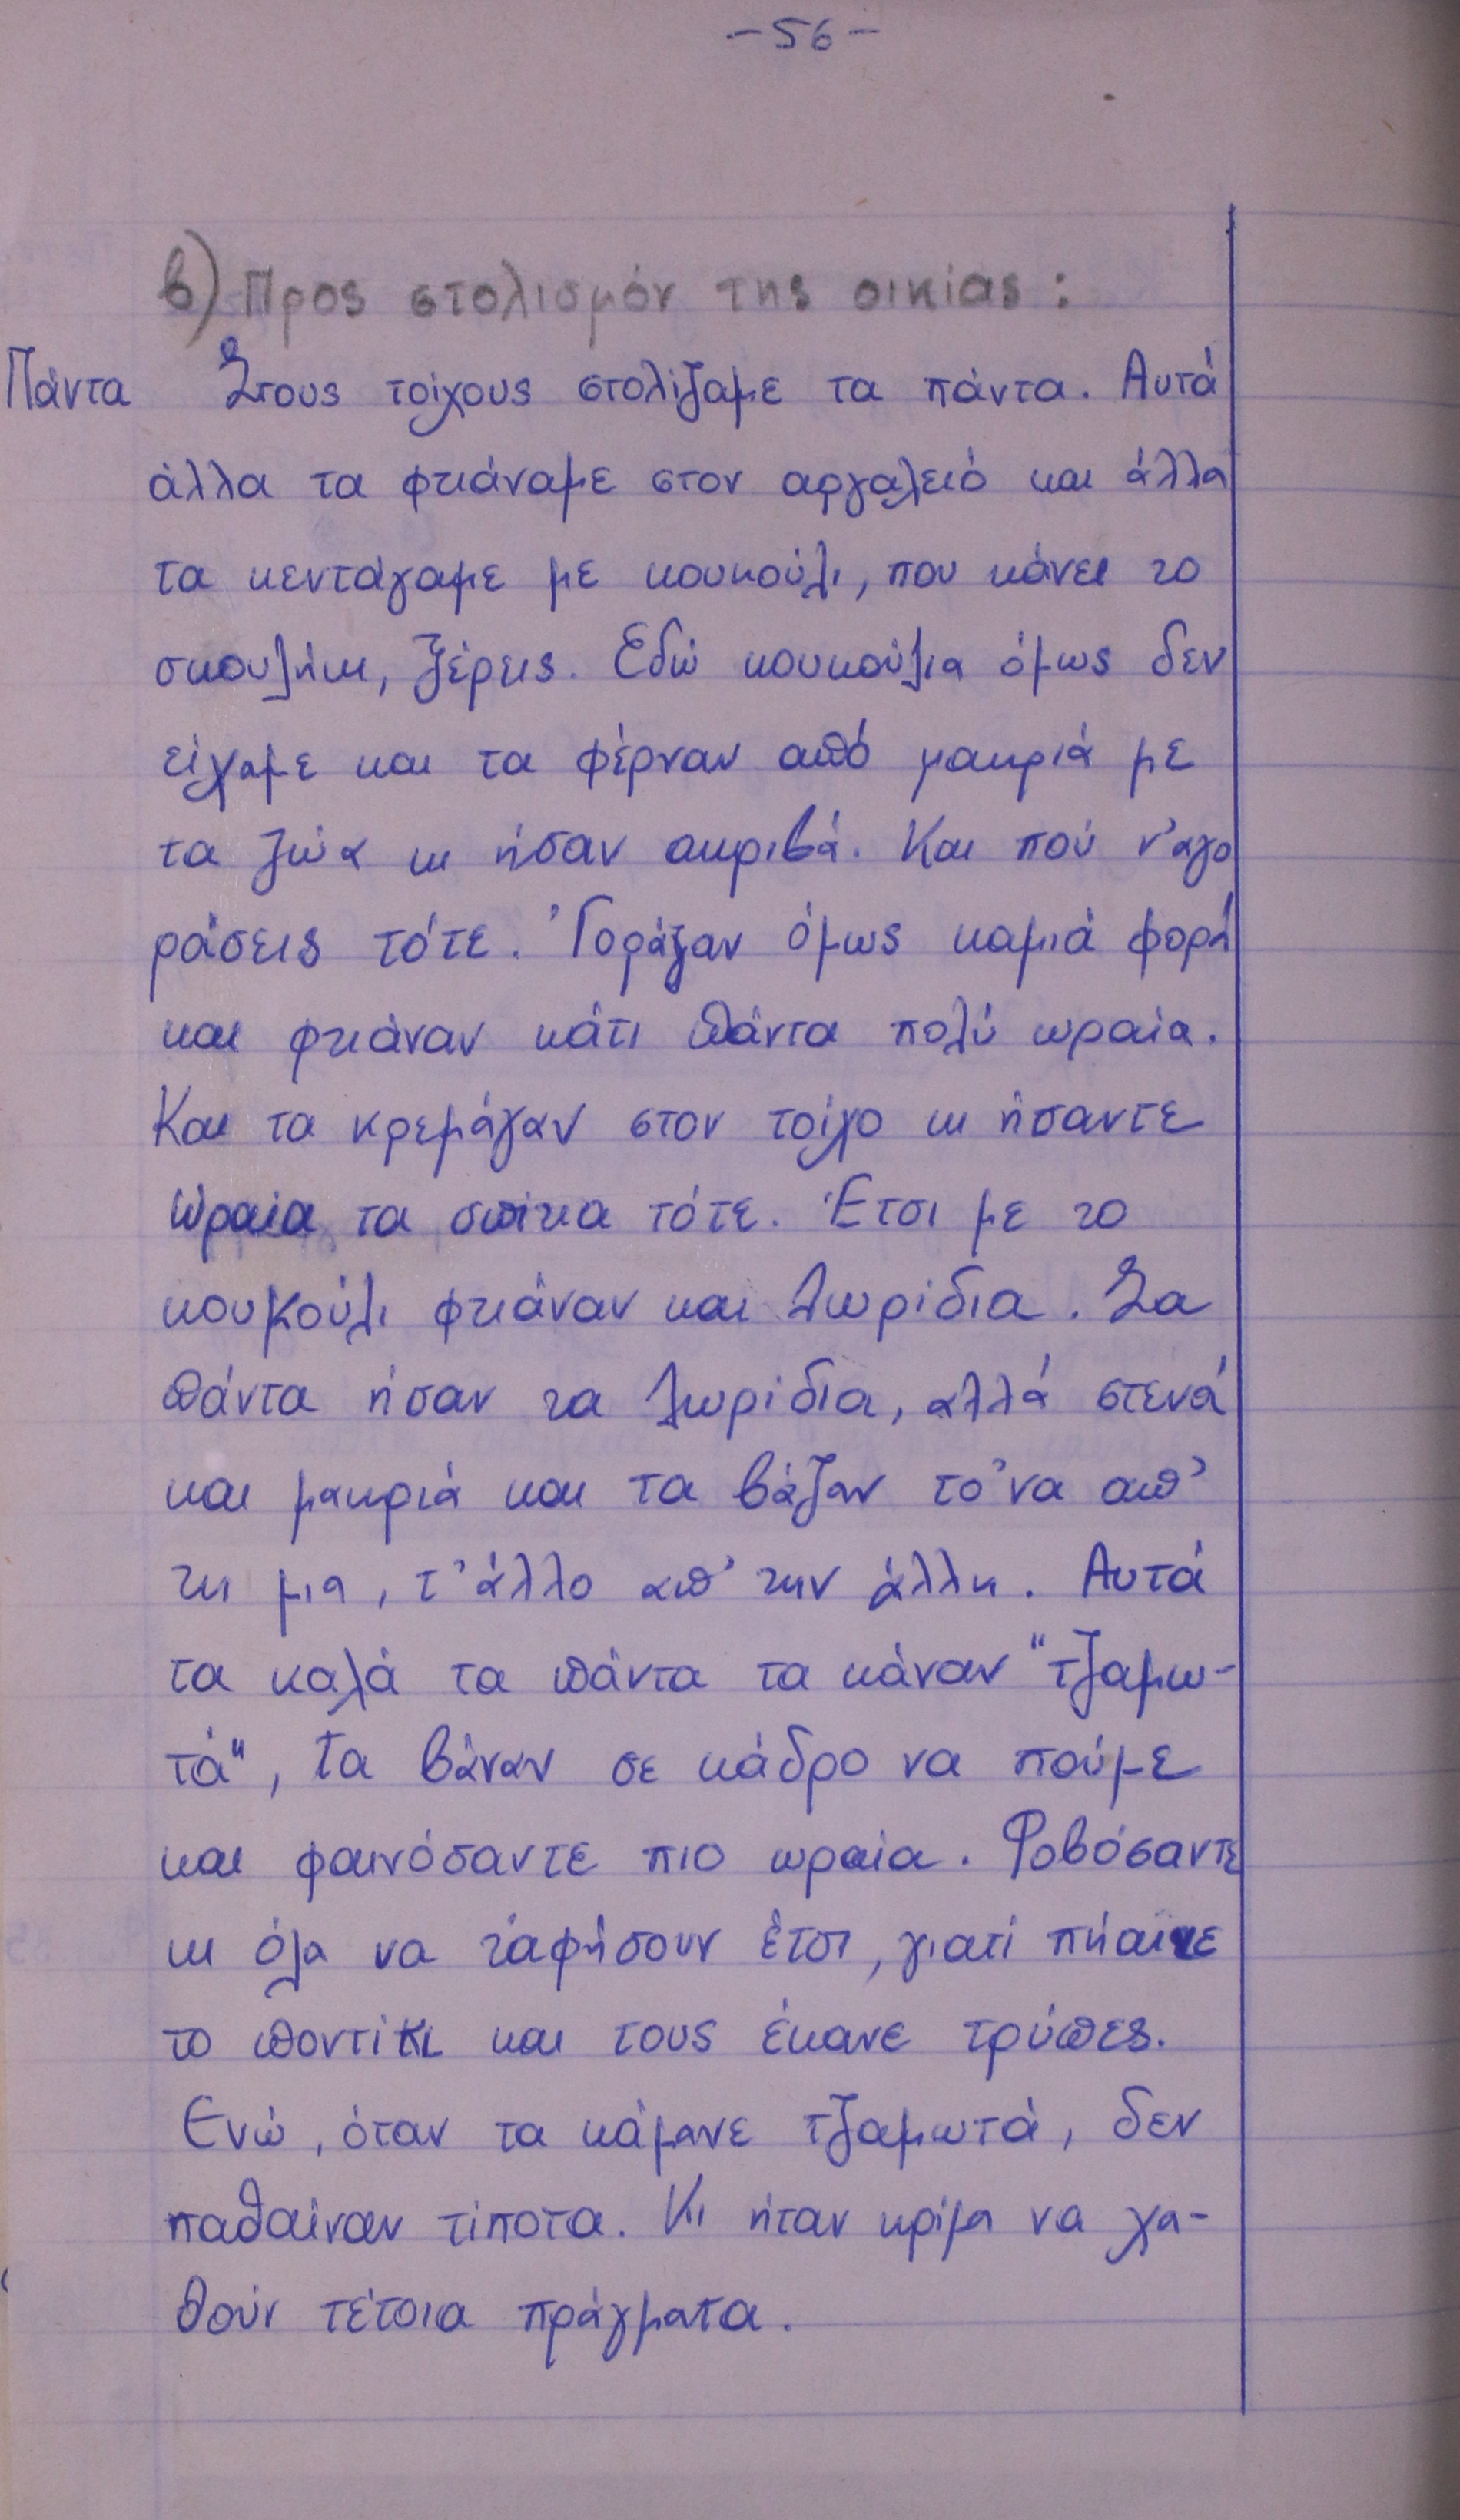 -56-
β) Προς στολισμόν της οικίας:
Πάντα Στους τοίχους στολίζαμε τα πάντα. Αυτά
άλλα τα φτιάναμε στον αργαλειό και άλλα
τα κεντάγαμε με κουκούλι, που κάνει το
σκουλήκι, ξέρεις. Εδώ κουκούλια όμως δεν
είχαμε και τα φέρναν από μακριά με
τα ζώα κι ήσαν ακριβά. Και πού ν' αγο
ράσεις τότε. 'Γοράζαν όμως καμιά φορά
και φτιάναν κάτι πάντα πολύ ωραία.
Και τα κρεμάγαν στον τοίχο κι ήσαντε
ωραία τα σπίτια τότε. Έτσι με το
κουκούλι φτιάναν και λωρίδια. Σα
πάντα ήσαν τα λωρίδια, αλλά στενά
και μακριά και τα βάζαν το 'να απ'
τη μια, τ' άλλο απ' την άλλη. Αυτά
τα καλά τα πάντα τα κάναν "τζαμω-
τά", τα βάναν σε κάδρο να πούμε
και φαινόσαντε πιο ωραία. Φοβόσαντε
κι όλα να τ' αφήσουν έτσι, γιατί πήαινε
το ποντίκι και τους έκανε τρύπες.
Ενώ, όταν τα κάμανε τζαμωτά, δεν
παθαίναν τίποτα. Κι ήταν κρίμα να χα-
θούν τέτοια πράγματα.